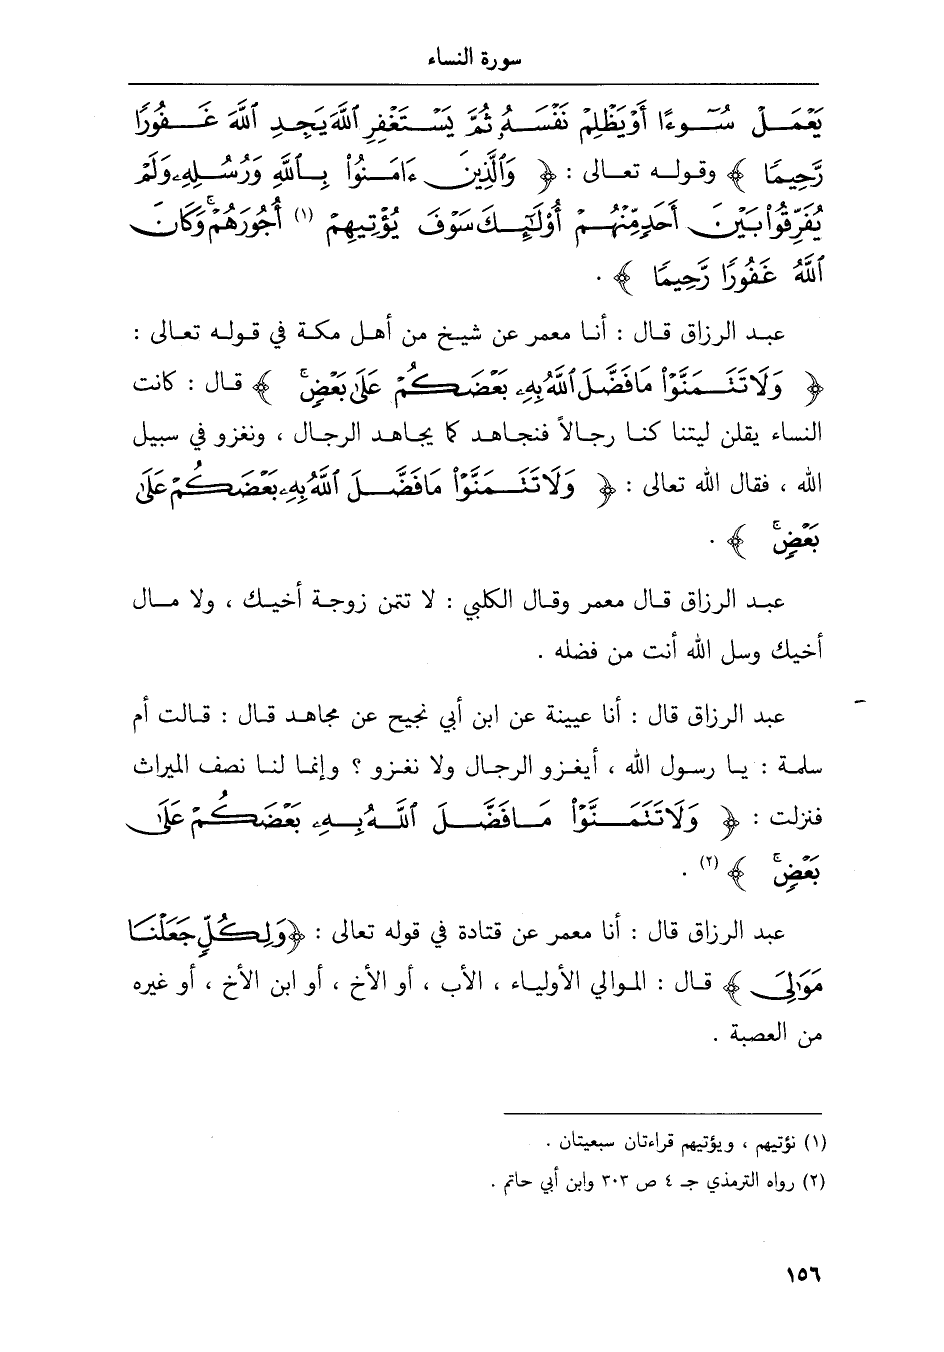 سورة النساء
يَعْمَلْ سُوٓءًا أَوْ يَظْلِمْ نَفْسَهُۥ ثُمَّ يَسْتَغْفِرِ ٱللَّهَ يَجِدِ ٱللَّهَ غَفُورًا
رَّحِيمًا ﴾ وقوله تعالى : ﴿ وَٱلَّذِينَ ءَامَنُوا۟ بِٱللَّهِ وَرُسُلِهِۦ وَلَمْ
يُفَرِّقُوا۟ بَيْنَ أَحَدٍ مِّنْهُمْ أُو۟لَٰٓئِكَ سَوْفَ يُؤْتِيهِمْ (١) أُجُورَهُمْ ۚ وَكَانَ
ٱللَّهُ غَفُورًا رَّحِيمًا ﴾ .
عبد الرزاق قال : أنا معمر عن شيخ من أهل مكة في قوله تعالى :
﴿ وَلَا تَتَمَنَّوْا۟ مَا فَضَّلَ ٱللَّهُ بِهِۦ بَعْضَكُمْ عَلَىٰ بَعْضٍ ۚ ﴾ قال : كانت
النساء يقلن ليتنا كنا رجالاً فنجاهد كما يجاهد الرجال ، ونغزو في سبيل
الله ، فقال الله تعالى : ﴿ وَلَا تَتَمَنَّوْا۟ مَا فَضَّلَ ٱللَّهُ بِهِۦ بَعْضَكُمْ عَلَىٰ
بَعْضٍ ۚ ﴾ .
عبد الرزاق قال معمر وقال الكلبي : لا تتمن زوجة أخيك ، ولا مال
أخيك وسل الله أنت من فضله .
عبد الرزاق قال : أنا عيينة عن ابن أبي نجيح عن مجاهد قال : قالت أم
سلمة : يا رسول الله ، أيغزو الرجال ولا نغزو ؟ وإنما لنا نصف الميراث
فنزلت : ﴿ وَلَا تَتَمَنَّوْا۟ مَا فَضَّلَ ٱللَّهُ بِهِۦ بَعْضَكُمْ عَلَىٰ
بَعْضٍ ۚ ﴾ (٢) .
عبد الرزاق قال : أنا معمر عن قتادة في قوله تعالى : ﴿ وَلِكُلٍّ جَعَلْنَا
مَوَٰلِىَ ﴾ قال : الموالي الأولياء ، الأب ، أو الأخ ، أو ابن الأخ ، أو غيره
من العصبة .
(١) نؤتيهم ، ويؤتيهم قراءتان سبعيتان .
(٢) رواه الترمذي جـ ٤ ص ٣٠٣ وابن أبي حاتم .
١٥٦